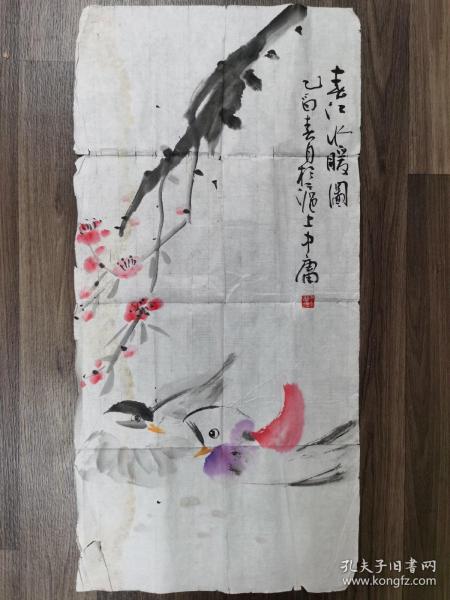 春江水暖圖
乙酉春月於滬上中庸
孔夫子旧书网
www.kongfz.com